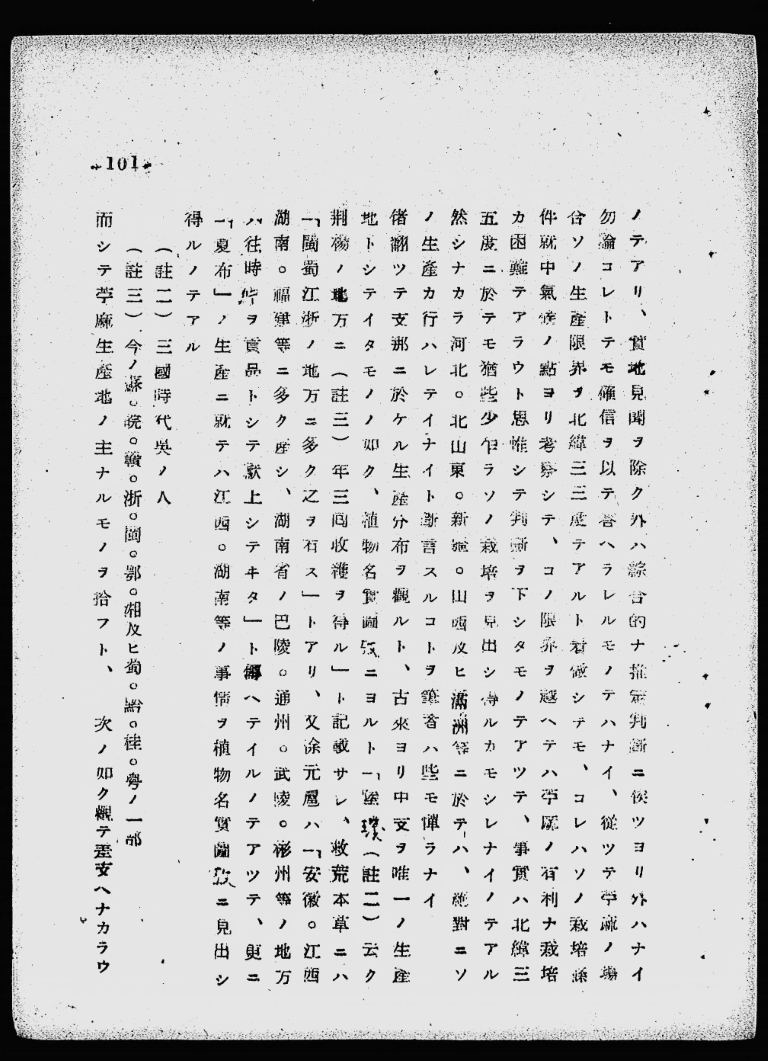 101
ノテアリ、實地見聞ヲ除ク外ハ綜合的ナ推定判斷ニ俟ツヨリ外ハナイ
勿論コレトテモ確信ヲ以テ答ヘラレルモノテハナイ、從ツテ苧麻ノ場
合ソノ生産限界ヲ北緯三三度テアルト看做シテモ、コレハソノ栽培條
件就中氣候ノ點ヨリ考察シテ、コノ限界ヲ越ヘテハ苧麻ノ有利ナ栽培
カ困難テアラウト思惟シテ判斷ヲ下シタモノテアツテ、事實ハ北緯三
五度ニ於テモ猶些少乍ラソノ栽培ヲ見出シ得ルカモシレナイノテアル
然シナカラ河北。北山東。新疆。山西及ヒ滿洲等ニ於テハ、絶對ニソ
ノ生產カ行ハレテイナイト斷言スルコトヲ筆者ハ些モ憚ラナイ
偖飜ツテ支那ニ於ケル生産分布ヲ觀ルト、古來ヨリ中支ヲ唯一ノ生產
地トシテイタモノノ如ク、植物名實圖攷ニヨルト「陸璣（註二）云ク
荆楊ノ地万ニ（註三）年三囘收穫ヲ得ル」ト記載サレ、救荒本草ニハ
「閩蜀江浙ノ地万ニ多ク之ヲ石ス」トアリ、又徐元扈ハ「安徽。江西
湖南。福建等ニ多ク産シ、湖南省ノ巴陵。通州。武陵。彬州等ノ地万
ハ往時ヲ貢品トシテ獻上シテキタ」ト傳ヘテイルノテアツテ、更ニ
「夏布」ノ生產ニ就テハ江西。湖南等ノ事情ヲ植物名實圖攷ニ見出シ
得ルノテアル
（註二）三國時代吳ノ人
（註三）今ノ蘇。皖。贛。浙。閩。鄂。湘及ヒ蜀。黔。桂。粤ノ一部
而シテ苧麻生産地ノ主ナルモノヲ拾フト、次ノ如ク觀テ差支ヘナカラウ